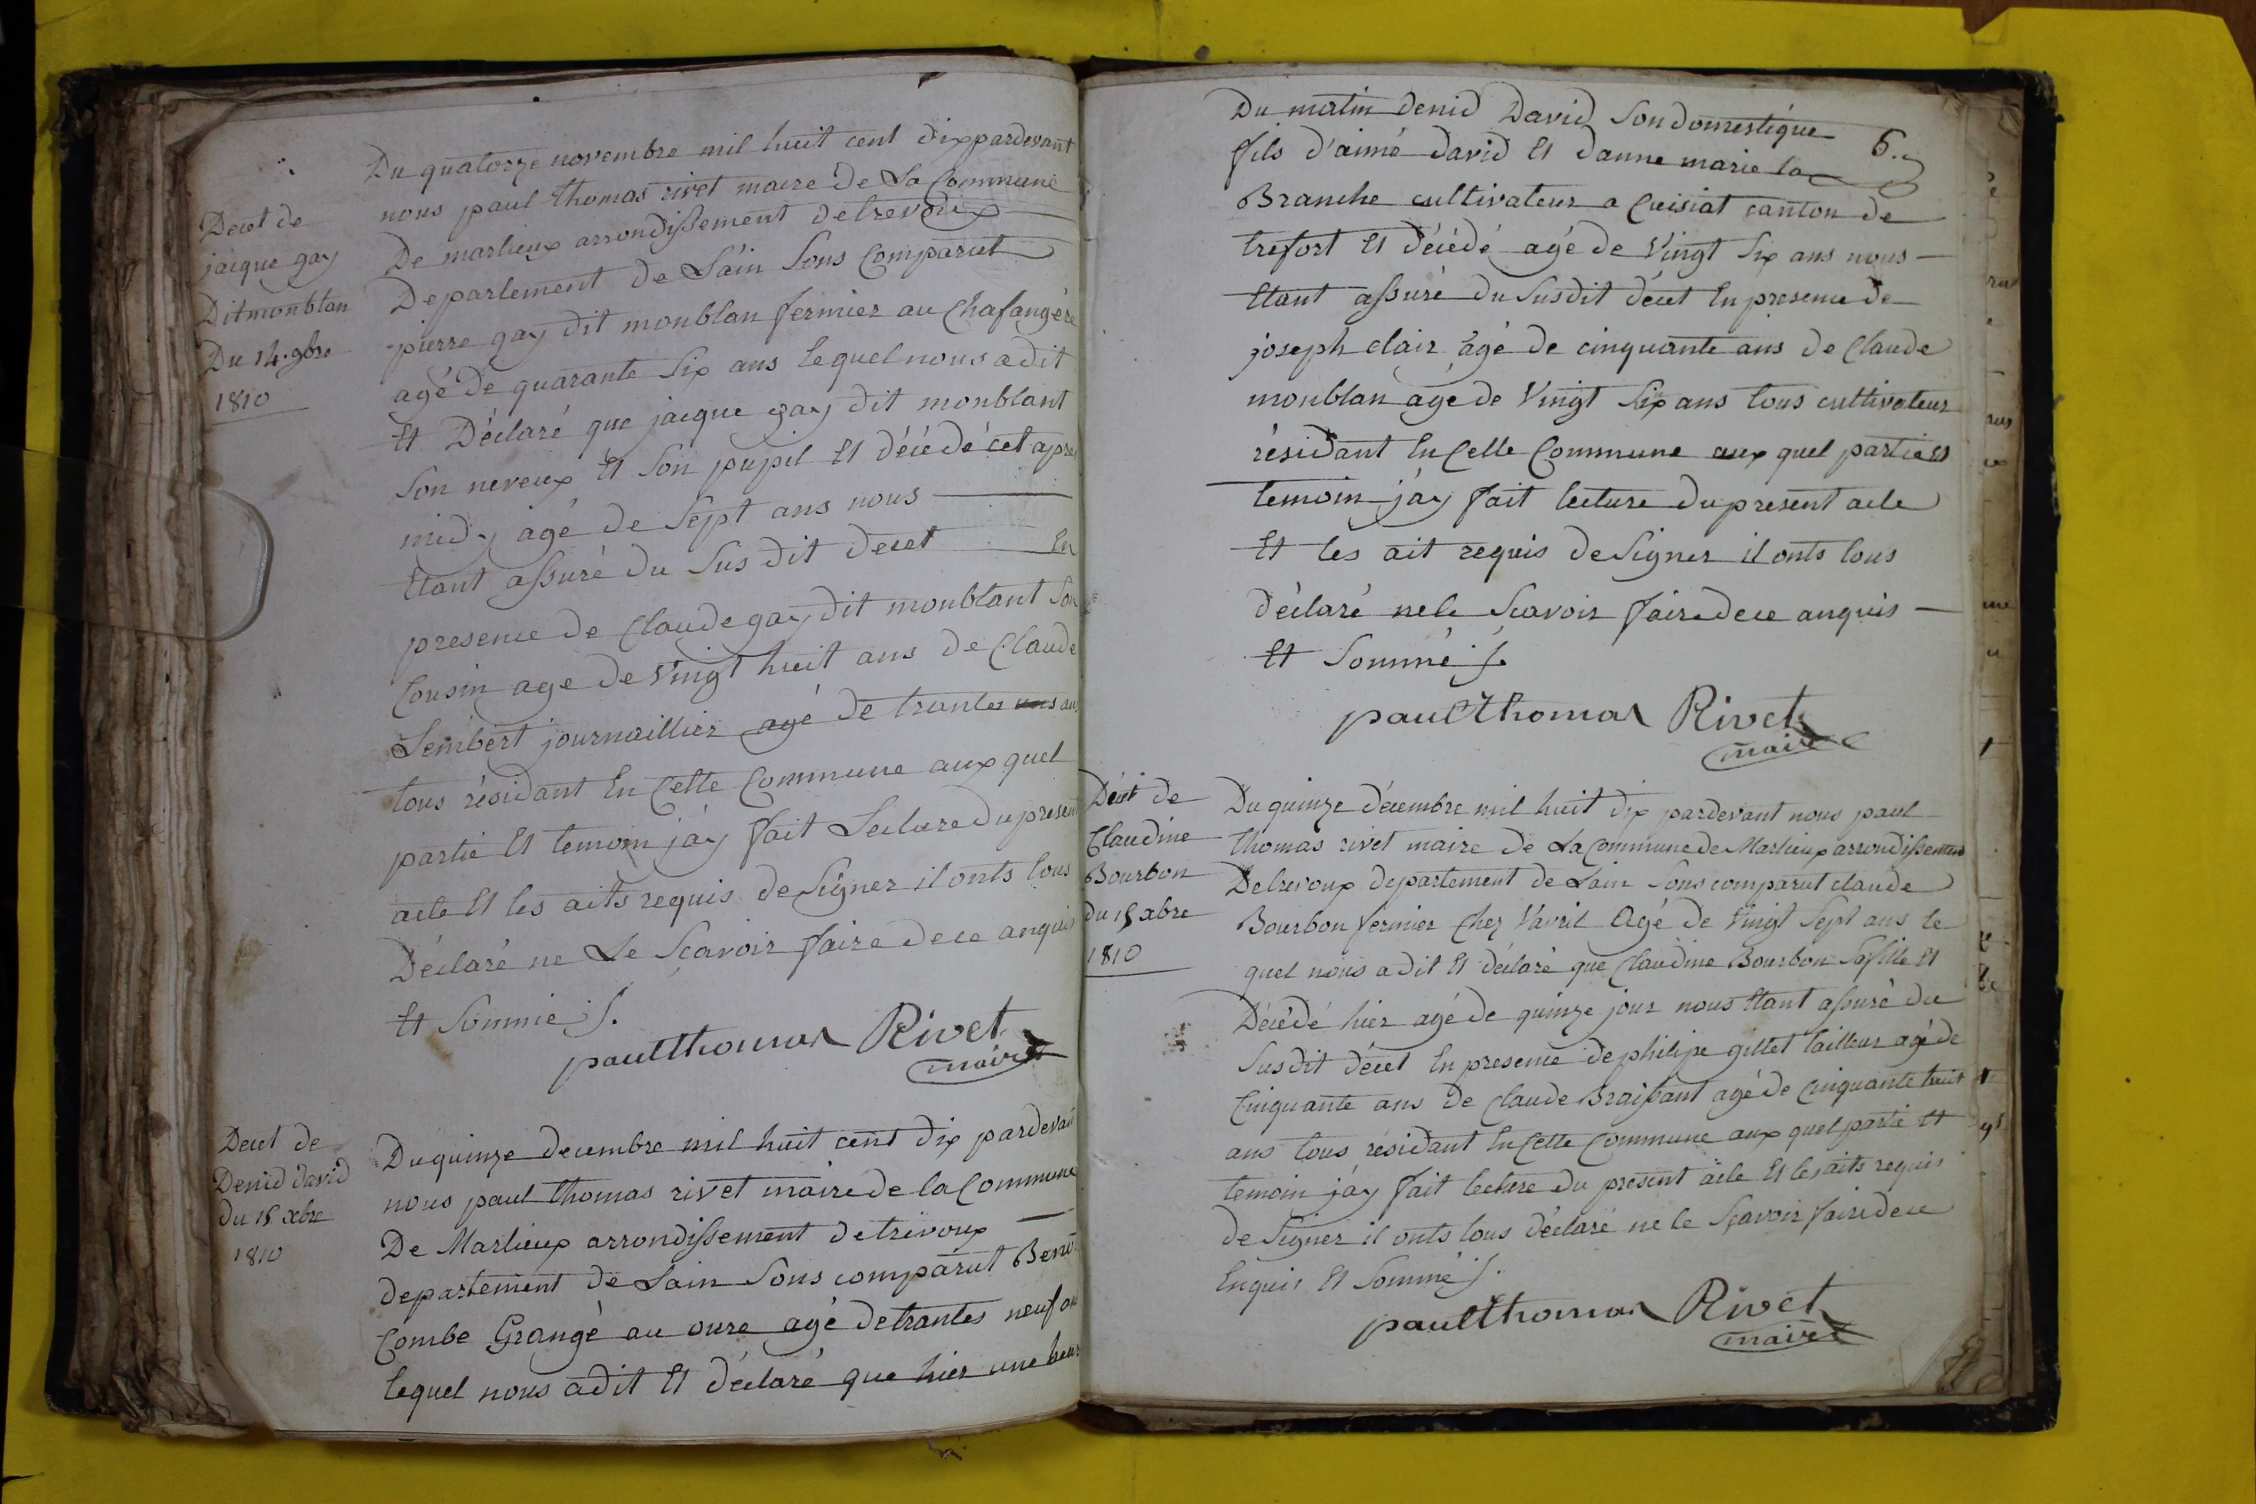 Decet de
jaique gay
Dit monblan
Du 14. 9bre
1810
Du quatorze novembre mil huit cent dix pardevant
nous paul thomas rivet maire de La Commune
De marlieux arrondissement de trevoux
Departement de Lain Sons Comparut
pierre gay dit monblan fermier au Chafangère
agé de quarante Six ans Lequel nous a dit
Et Déclaré que jacque gay dit monblant
Son neveux Et Son pupil Et décédé cet apre
midy agé de Sept ans nous
Etant assuré du Sus dit decet En
presence de Claude gay dit monblant Son
Cousin age de vingt huit ans de Claude
Lembert journaillier agé de trantes ans
tous résidant En Cette Commune aux quel
partie Et temoin j'ay fait Lecture du present
acte Et les aits requis de Signer il onts tous
Déclaré ne Le Sçavoir faire de ce anquis
Et Sommé ∫.
paul thomas Rivet
maire
Decet de
Denid david
du 15 xbre
1810
Du quinze decembre mil huit cent dix pardevan
nous paul thomas rivet maire de la Commune
De Marlieux arrondissement de trevoux
departement de Lain Sons comparut Benoi
Combe Grangé au oure agé de trantes neuf an
lequel nous a dit Et déclaré que hier une heur
6.
Du matin denid David Son domestique
fils d'aimé david Et danne marie la
Branche cultivateur a Cuisiat canton de
trefort Et décédé agé de Vingt Six ans nous
Etant assuré du Susdit décet En presence de
joseph clair agé de cinquante ans de Claude
monblan agé de Vingt Six ans tous cultivateur
résidant En Cette Commune aux quel partie Et
temoin j'ay fait lecture du present acte
Et les ait requis de Signer il onts tous
déclaré ne le Scavoir faire de ce anquis
Et Sommé ∫.
paul thomas Rivet
maire
Décet de
Claudine
Bourbon
du 15 xbre
1810
Du quinze décembre mil huit dix pardevant nous paul
thomas rivet maire de La Commune de Marlieux arrondissement
De trevoux departement de Lain Sons comparut claude
Bourbon fermier Chez Vavril Agé de Vingt Sept ans le
quel nous a dit Et déclaré que Claudine Bourbon Sa fille Et
Décédé hier agé de quinze jour nous Etant assuré du
Susdit décet En presence de philipe gillet tailleur agé de
Cinquante ans de Claude Braissant agé de Cinquante huit
ans tous résidant En Cette Commune aux quel partie Et
temoin j'ay fait lecture du present acte Et les aits requis
de Signer il onts tous déclaré ne le Sçavoir faire de ce
Enquis Et Sommé ∫.
paul thomas Rivet
maire